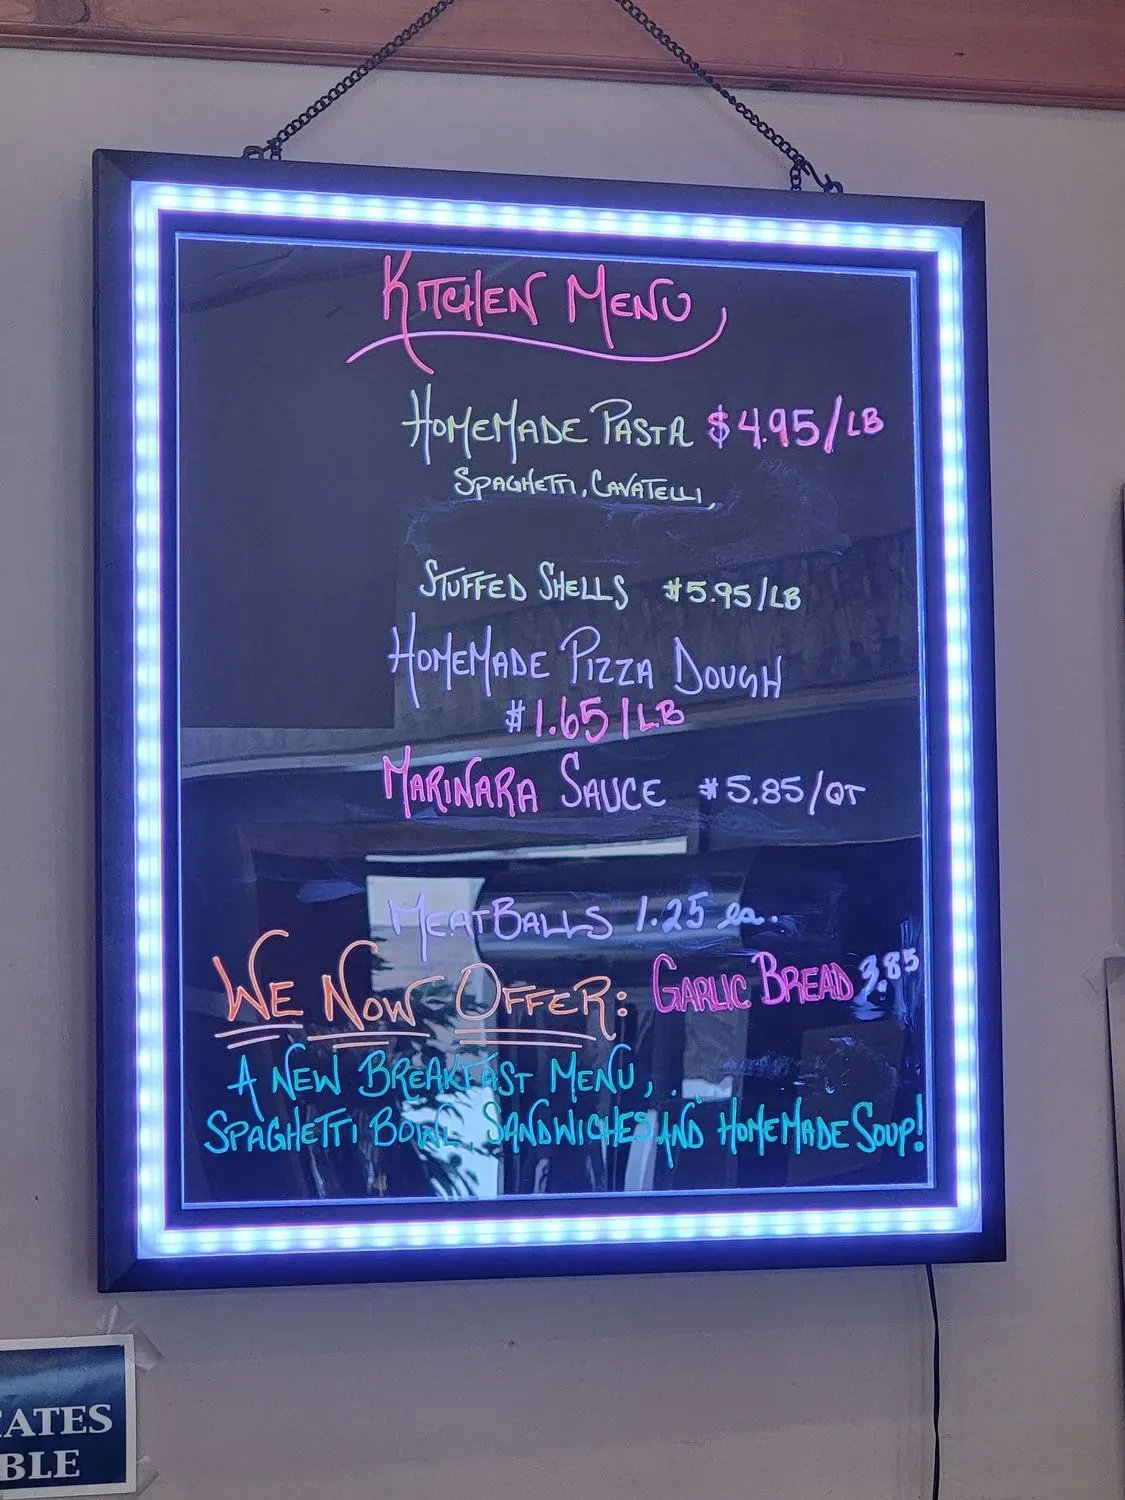 KITCHEN MENU
HOMEMADE PASTA $4.95/LB
SPAGHETTI, CAVATELLI,
STUFFED SHELLS $5.95/LB
HOMEMADE PIZZA DOUGH
$1.65/LB
MARINARA SAUCE $5.85/QT
MEATBALLS 1.25 ea.
WE NOW OFFER: GARLIC BREAD 3.85
A NEW BREAKFAST MENU,
SPAGHETTI BOWL, SANDWICHES AND HOMEMADE SOUP!